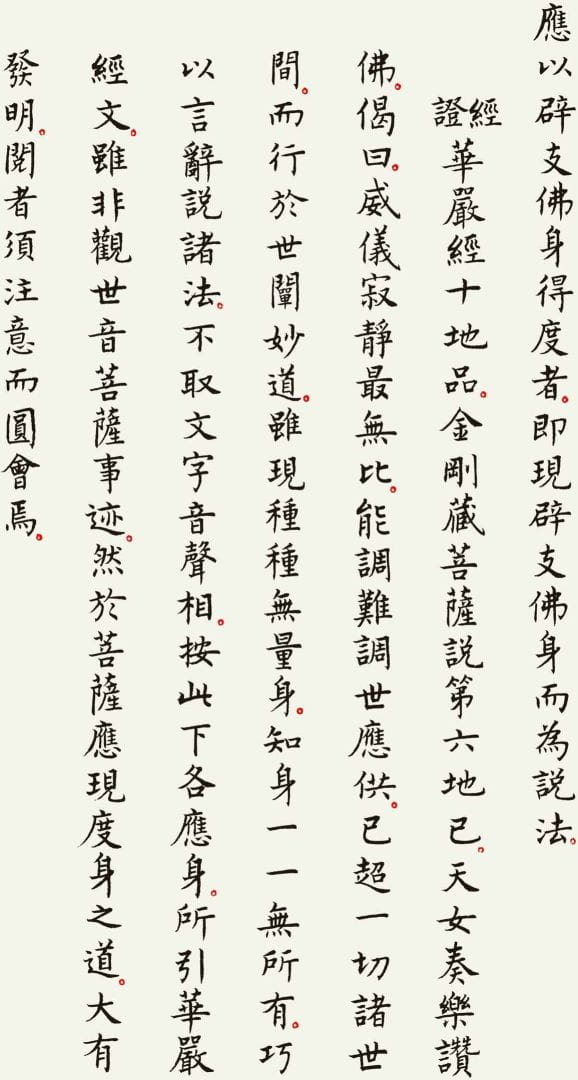 應以辟支佛身得度者。即現辟支佛身而為説法。
經證華嚴經十地品。金剛藏菩薩説第六地已。天女奏樂讚
佛。偈曰。威儀寂靜最無比。能調難調世應供。已超一切諸世
間。而行於世闡妙道。雖現種種無量身。知身一一無所有。巧
以言辭説諸法。不取文字音聲相。按此下各應身。所引華嚴
經文。雖非觀世音菩薩事迹。然於菩薩應現度身之道。大有
發明。閱者須注意而圓會焉。